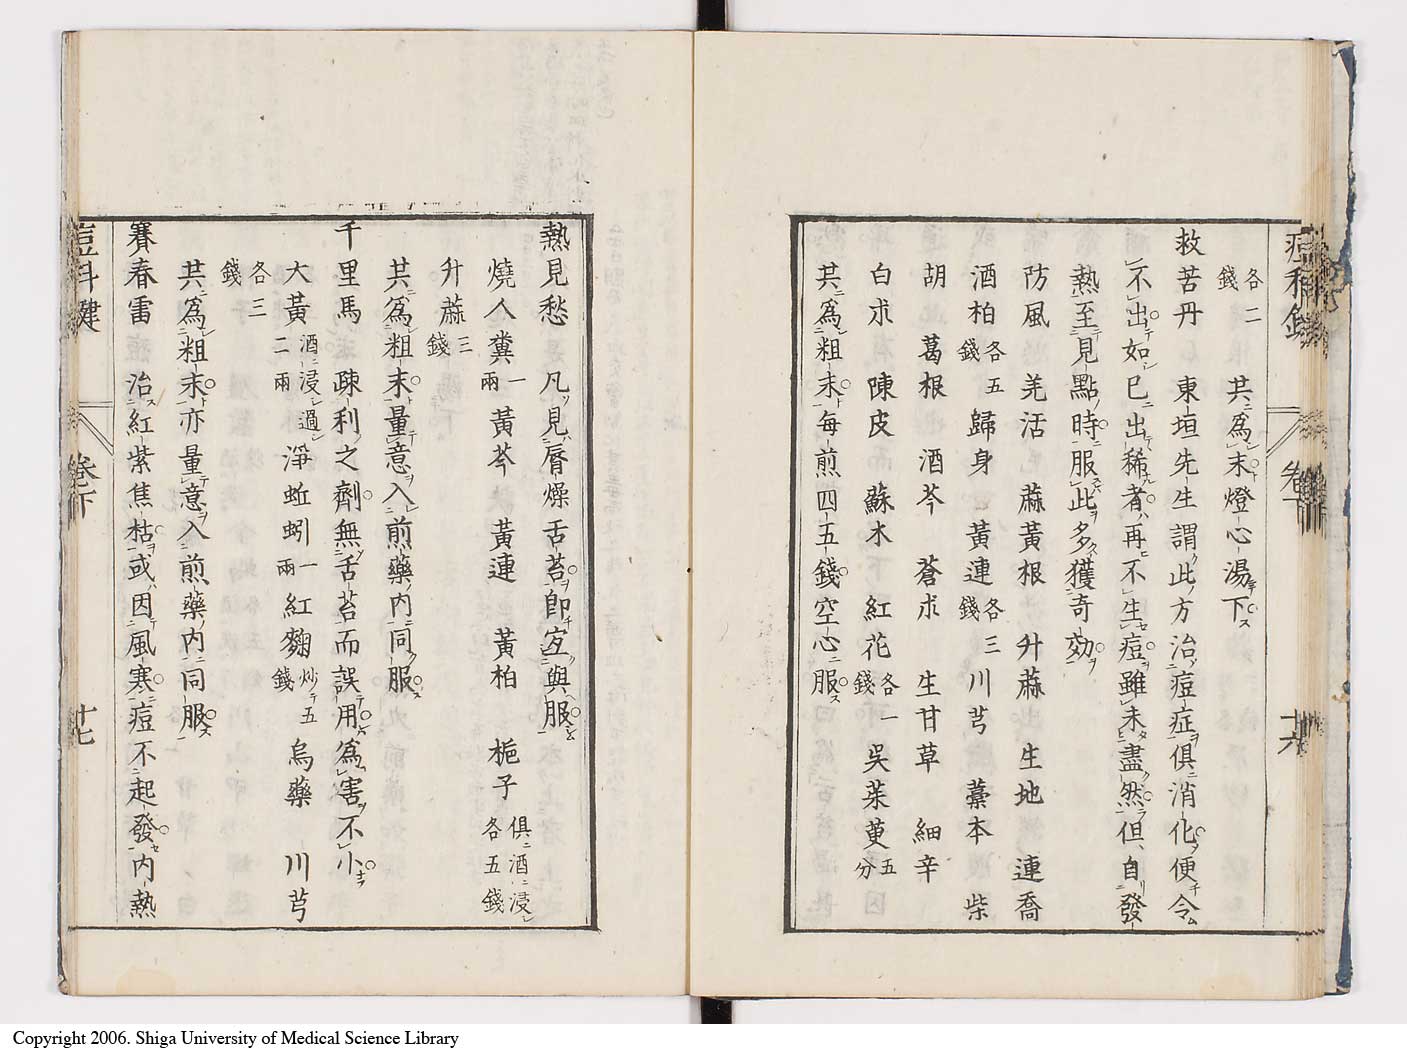 各二錢 共爲末燈心湯下
救苦丹 東垣先生謂此方治痘症俱消化便令
不出如已出稀者再不生痘雖未盡然但自發
熱至見點時服此多獲奇効
防風 羌活 蔴黃根 升蔴 生地 連喬
酒柏各五錢 歸身 黃連各三錢 川芎 藁本 柴
胡 葛根 酒芩 蒼朮 生甘草 細辛
白朮 陳皮 蘇木 紅花各一錢 吳茱萸五分
共爲粗末每煎四五錢空心服
卷下
十六
熱見愁 凡見唇燥舌苔即宜與服
燒人糞一兩 黃芩 黃連 黃柏 梔子俱酒浸各五錢
升蔴三錢
共爲粗末量意入煎藥內同服
千里馬 疎利之劑無舌苔而誤用爲害不小
大黃酒浸過二兩 淨蚯蚓一兩 紅麴炒五錢 烏藥 川芎
各三錢
共爲粗末亦量意入煎藥內同服
賽春雷 治紅紫焦枯或因風寒痘不起發內熱
痘科鍵
卷下
十七
Copyright 2006. Shiga University of Medical Science Library